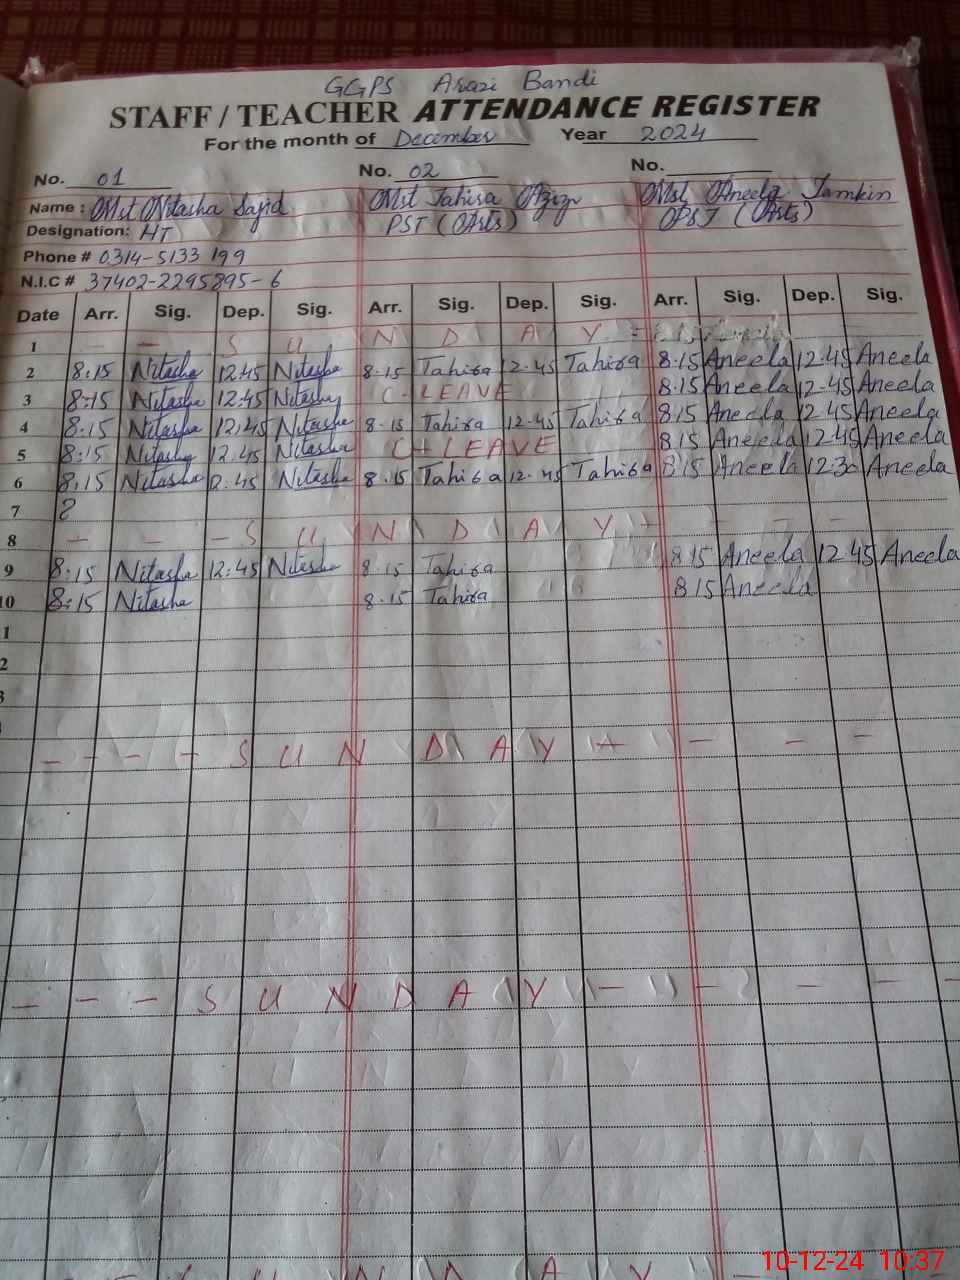 GGPS Arazi Bandi
STAFF / TEACHER ATTENDANCE REGISTER
For the month of December Year 2024
No. 01 No. 02 No.
Name : Mst Nitasha Sajid Mst Tahira Aziz Mst Aneela Tamkin
Designation: HT PST (Arts) PST (Arts)
Phone # 0314-5133 199
N.I.C # 37402-2295895-6
Date Arr. Sig. Dep. Sig. Arr. Sig. Dep. Sig. Arr. Sig. Dep. Sig.
1 - - S U N D A Y -
2 8:15 Nitasha 12:45 Nitasha 8.15 Tahira 12.45 Tahira 8.15 Aneela 12.45 Aneela
3 8:15 Nitasha 12:45 Nitasha C-LEAVE 8.15 Aneela 12.45 Aneela
4 8:15 Nitasha 12:45 Nitasha 8.15 Tahira 12.45 Tahira 8.15 Aneela 12.45 Aneela
5 8:15 Nitasha 12.45 Nitasha C-LEAVE 8.15 Aneela 12.45 Aneela
6 8:15 Nitasha 12.45 Nitasha 8.15 Tahira 12.45 Tahira 8.15 Aneela 12.30 Aneela
7
8 - - - S U N D A Y - - - -
9 8:15 Nitasha 12:45 Nitasha 8.15 Tahira 8.15 Aneela 12.45 Aneela
10 8:15 Nitasha 8.15 Tahira 8.15 Aneela
1
2
3
- - - - S U N D A Y - - - -
- - - S U N D A Y - - - - -
U N D A Y
10-12-24 10:37